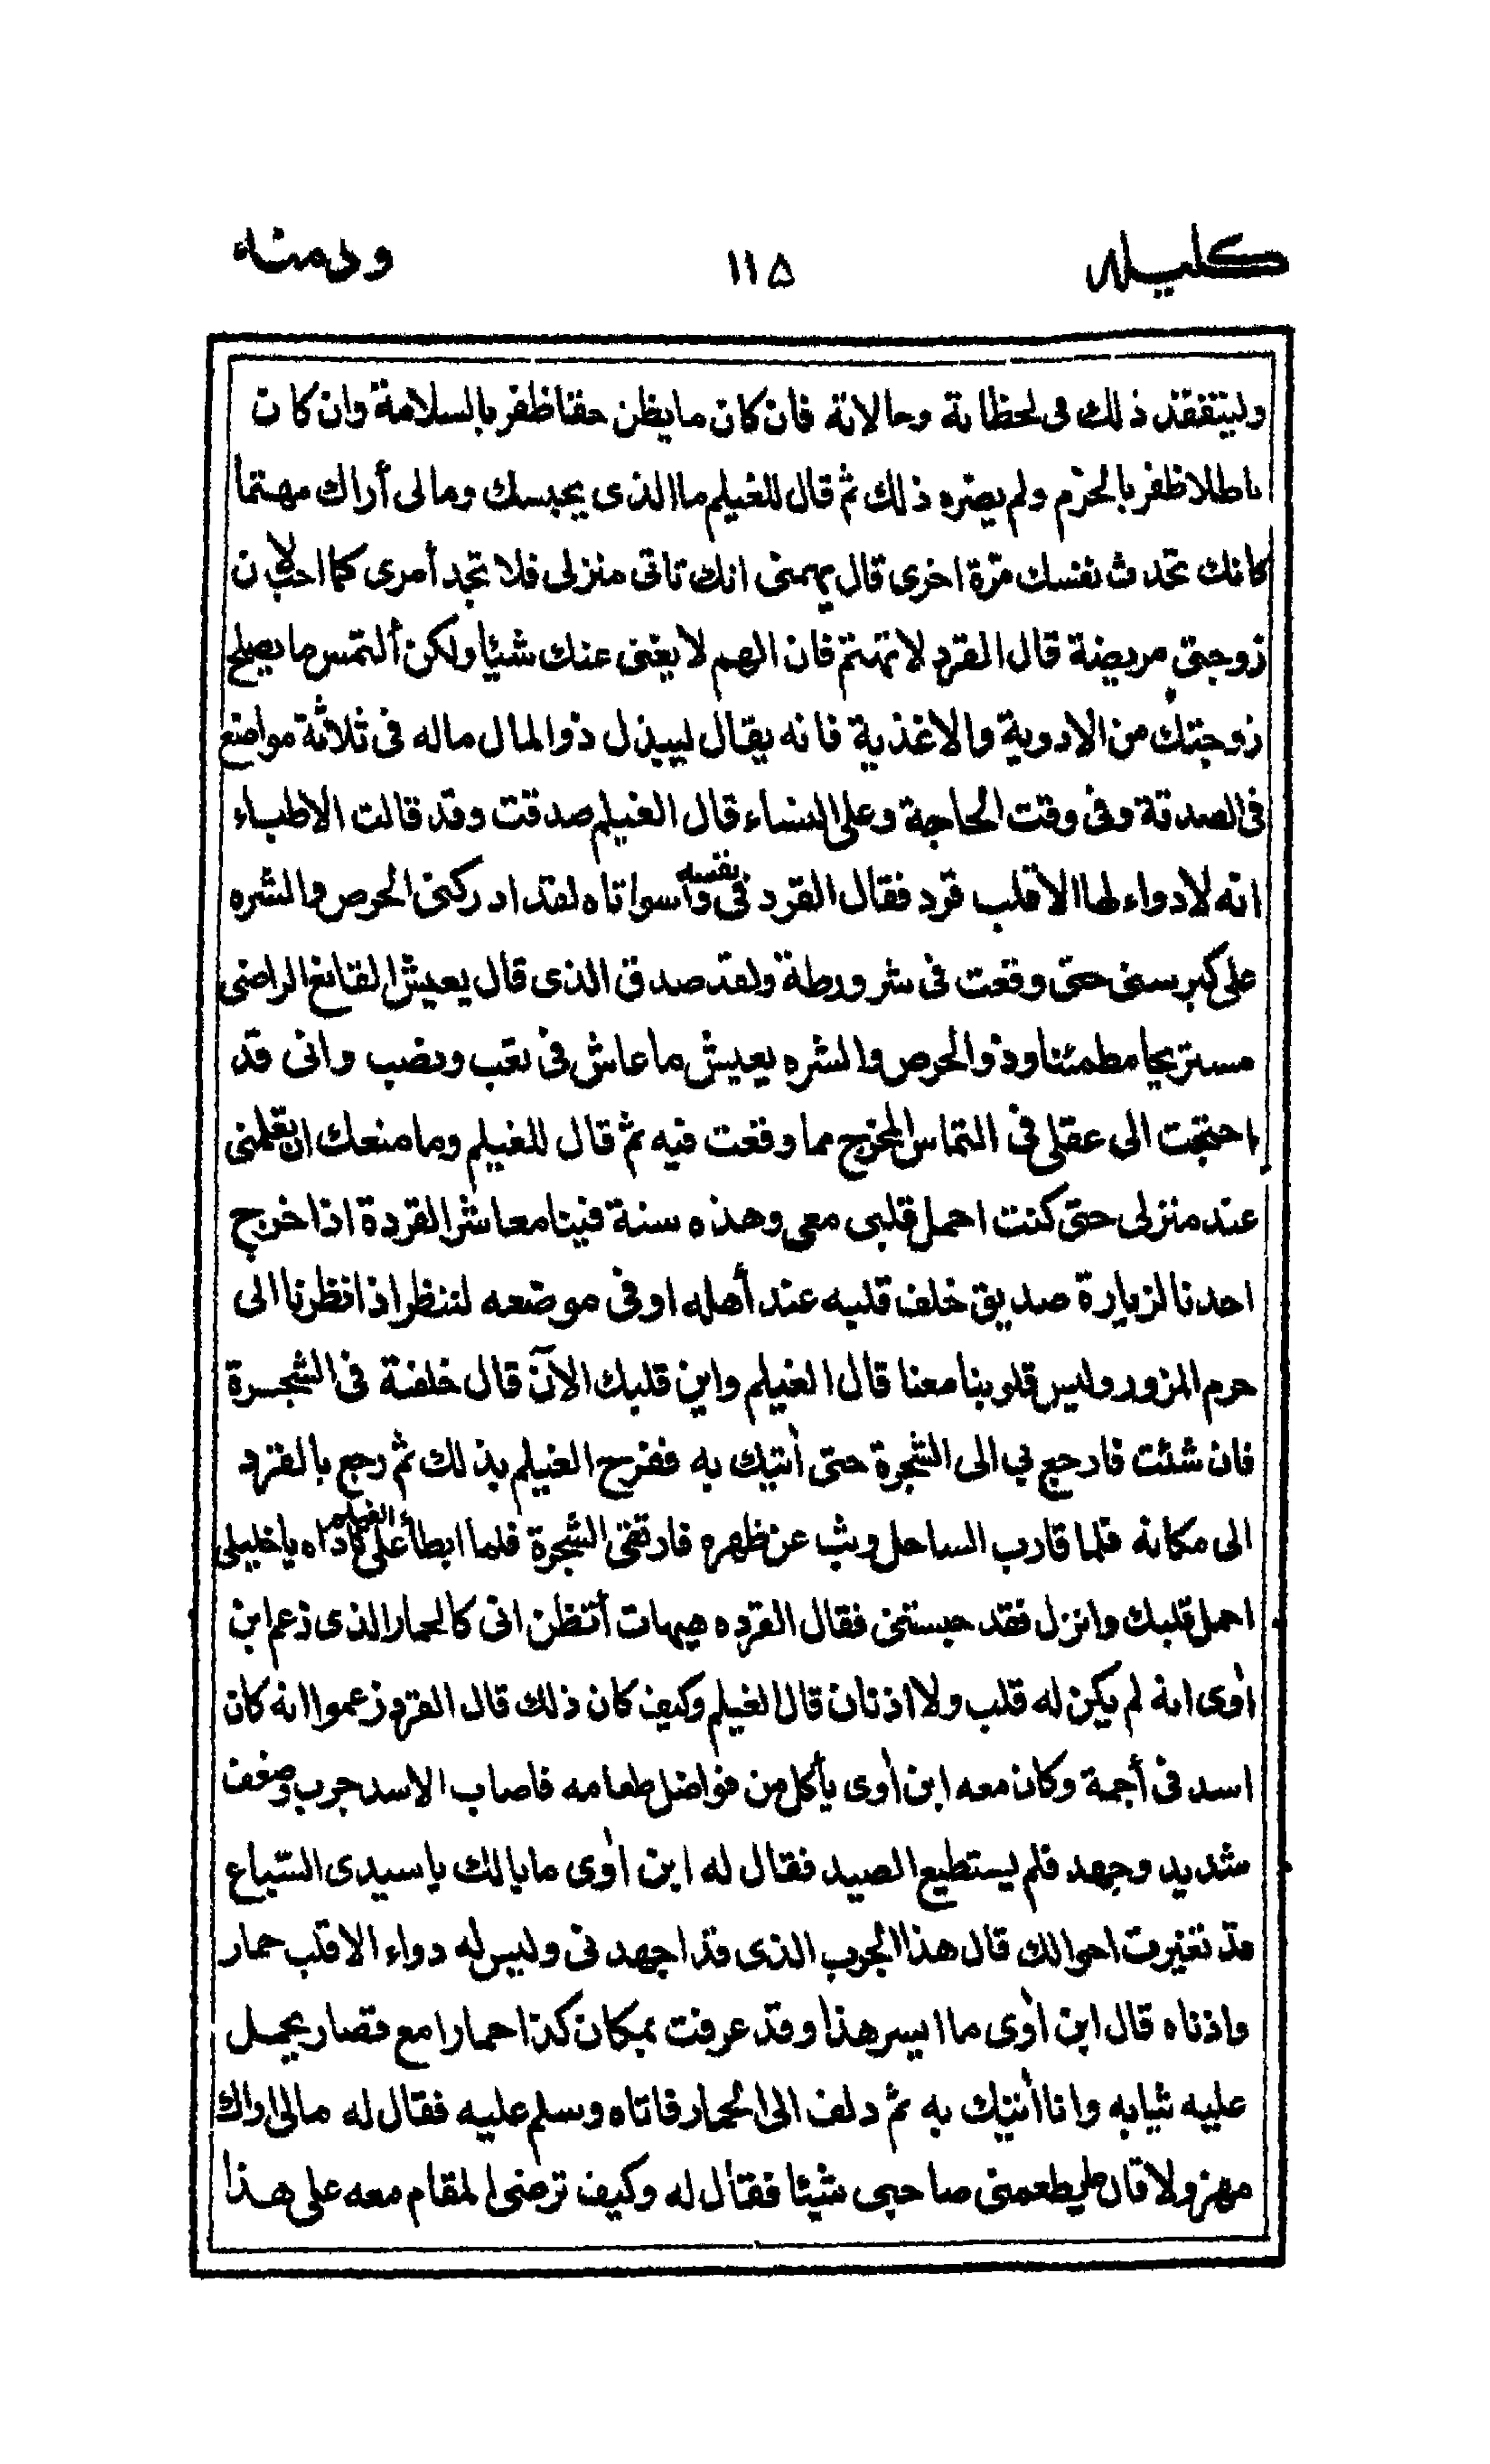 كليله ١١٥ ودمنه
وليتفقد ذلك فى لحظاته وحالاته فان كان ما يظن حقا ظفر بالسلامة وان كان
باطلا ظفر بالحزم ولم يضره ذلك ثم قال للغيلم ما الذى يحبسك ومالى أراك مهتما
كانك تحدث نفسك مرّة اخرى قال يهمنى انك تاتى منزلى فلا تجد أمرى كما احب لان
زوجتى مريضة قال القرد لا تهتم فان الهم لا يغنى عنك شيئا ولكن ألتمس ما يصلح
زوجتك من الادوية والاغذية فانه يقال ليبذل ذوالمال ماله فى ثلاثة مواضع
فى الصدقة وفى وقت الحاجة وعلى النساء قال الغيلم صدقت وقد قالت الاطباء
انه لا دواء لها الا قلب قرد فقال القرد فى نفسه واسواتاه لقد ادركنى الحرص والشره
على كبر سنى حتى وقعت فى شر ورطة ولقد صدق الذى قال يعيش القانع الراضى
مستريحا مطمئنا وذو الحرص والشره يعيش ما عاش فى تعب ونصب وانى قد
احتجت الى عقلى فى التماس المخرج مما وقعت فيه ثم قال للغيلم وما منعك ان تعلمنى
عند منزلى حتى كنت احمل قلبى معى وهذه سنة فينا معاشر القردة اذا خرج
احدنا لزيارة صديق خلف قلبه عند أهله اوفى موضعه لننظر اذا نظرنا الى
حرم المزور وليس قلوبنا معنا قال الغيلم واين قلبك الآن قال خلفته فى الشجرة
فان شئت فارجع بى الى الشجرة حتى أتيك به ففرح الغيلم بذلك ثم رجع بالقرد
الى مكانه فلما قارب الساحل وثب عن ظهره فارتقى الشجرة فلما ابطأ على الغيلم ناداه يا خليلى
احمل قلبك وانزل فقد حبستنى فقال القرده هيهات أتظن انى كالحمار الذى زعم ابن
أوى انه لم يكن له قلب ولا اذنان قال الغيلم وكيف كان ذلك قال القرد زعموا انه كان
اسد فى أجمة وكان معه ابن أوى يأكل من فواضل طعامه فاصاب الاسد جرب وضعف
شديد وجهد فلم يستطيع الصيد فقال له ابن أوى ما بالك يا سيدى السّباع
قد تغيرت احوالك قال هذا الجرب الذى قد اجهدنى وليس له دواء الا قلب حمار
واذناه قال ابن أوى ما ايسر هذا وقد عرفت بمكان كذا حمارا مع قصار يحمل
عليه ثيابه وانا أتيك به ثم دلف الى الحمار فاتاه وسلم عليه فقال له مالى اراك
مهزولا قال لم يطعمنى صاحبى شيئا فقال له وكيف ترضى المقام معه على هذا